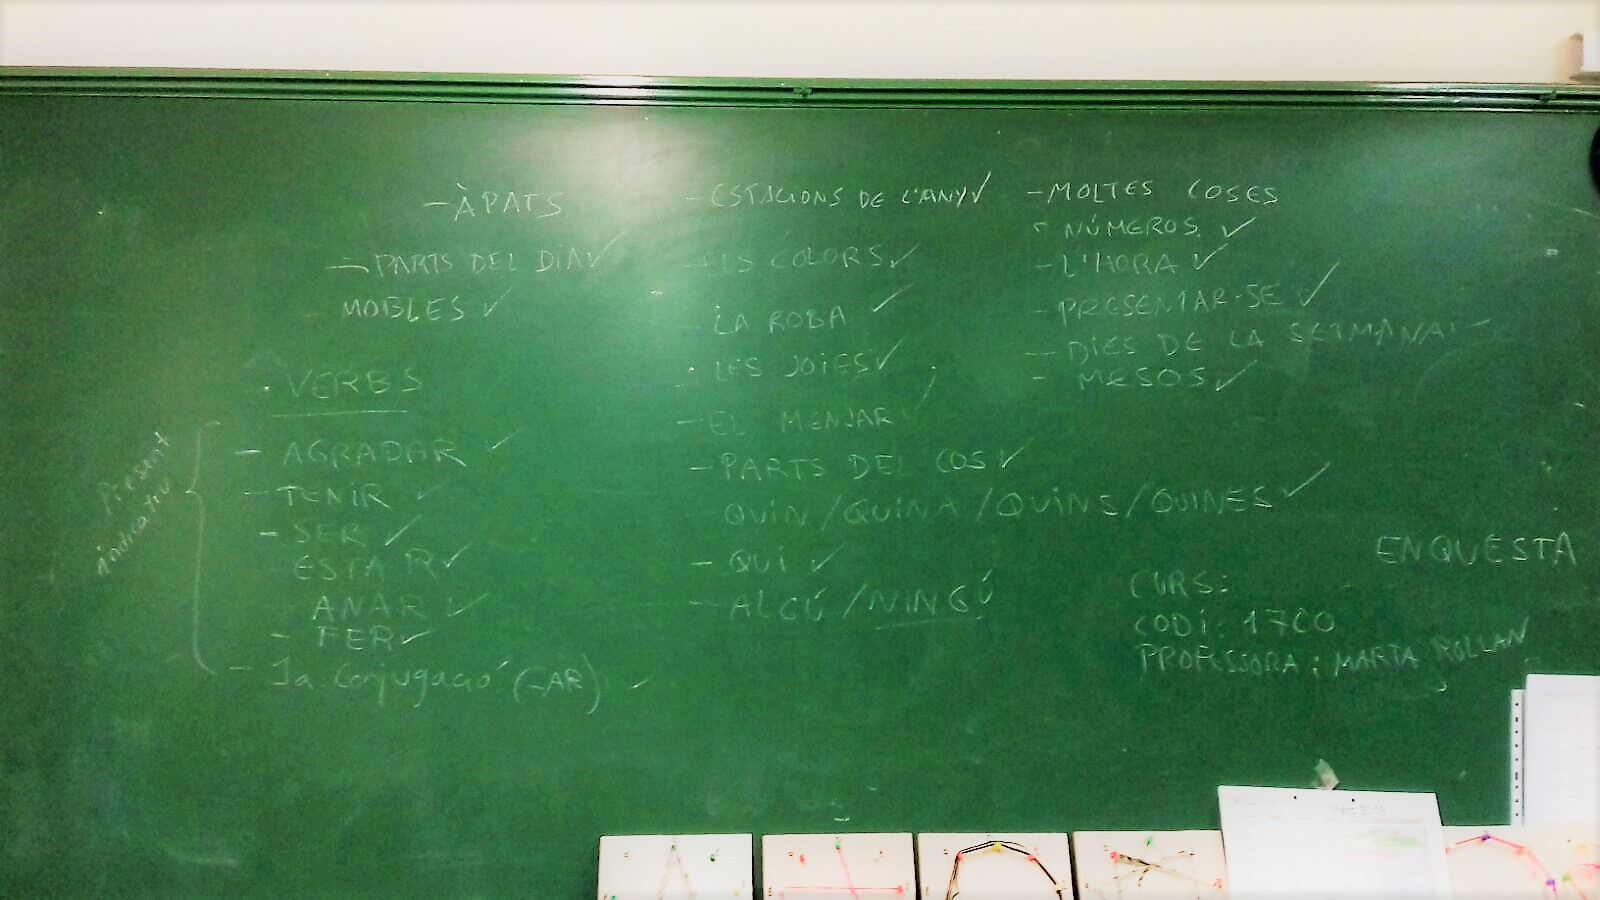 - ÀPATS
- PARTS DEL DIA ✓
MOBLES ✓
· VERBS
Present indicatiu
- AGRADAR ✓
- TENIR ✓
- SER ✓
ESTAR ✓
ANAR ✓
- FER ✓
- 1a. Conjugació (-AR) ✓
- ESTACIONS DE L'ANY ✓
- ELS COLORS ✓
- LA ROBA ✓
- LES JOIES ✓
- EL MENJAR ✓
- PARTS DEL COS ✓
QUIN / QUINA / QUINS / QUINES ✓
- QUI ✓
- ALGÚ / NINGÚ ✓
- MOLTES COSES
- NÚMEROS ✓
- L'HORA ✓
- PRESENTAR-SE ✓
- DIES DE LA SETMANA ✓
- MESOS ✓
ENQUESTA
CURS:
CODI: 17CO
PROFESSORA: MARTA ROLLAN
Març 2018